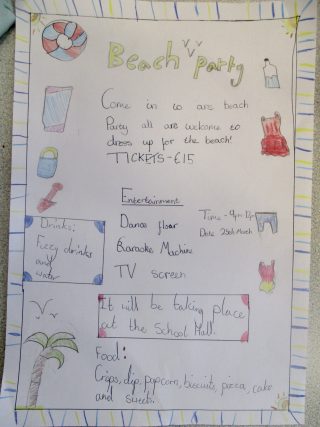 Beach party
Come in to ars beach
Party all are welcome to
dress up for the beach!
TICKETS - €15
Entertainment
Dance floor
Karaoke Machine
TV screen
Time -
Date 25th March
Drinks:
Fizzy drinks
and
water
It will be taking place
at the School Hall.
Food:
Crisps, dip, popcorn, biscuits, pizza, cake
and sweets.